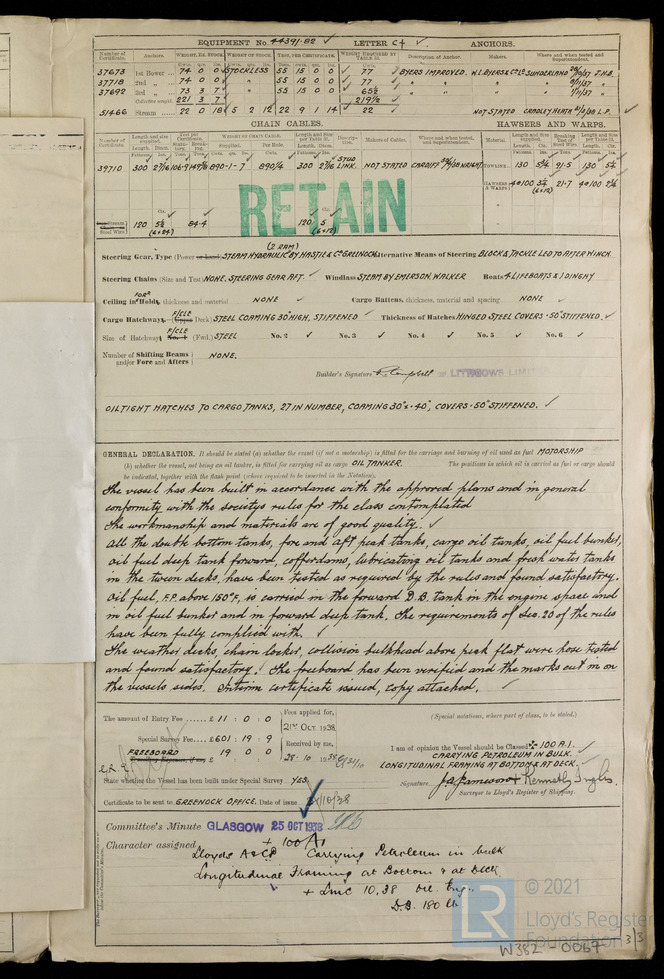 EQUIPMENT No. 44391.82 ✓ LETTER C† ✓. ANCHORS.
Number of Certificate. Anchors. WEIGHT, EX. STOCK. WEIGHT OF STOCK. TEST, PER CERTIFICATE. WEIGHT REQUIRED BY TABLE 31. Description of Anchor. Makers. Where and when tested and Superintendent.
37673 1st Bower 74 0 0 STOCKLESS 55 15 0 0 ✓ 77 BYERS IMPROVED. W.L. BYERS & Co Ld SUNDERLAND
37718 2nd " 74 0 0 55 15 0 0 ✓ 77 " " "
37692 3rd " 73 3 7 55 15 0 0 ✓ 65½ " " "
Collective weight. 221 3 7 219½ ✓
51466 Stream 22 0 18 5 2 12 22 9 1 14 ✓ 22 ✓ NOT STATED CRADLEY HEATH L.P.
CHAIN CABLES. HAWSERS AND WARPS.
39710 300 2 7/16 890-1-7 890¼ 300 2 7/16 STUD LINK. NOT STATED CARDIFF WRIGHT TOWLINE 130 5¼ 91.5 130 5¼
HAWSERS & WARPS 4@100 21.7 4@100
Steel Wire 120 5½ (6×24) 84.4 120 5 (6×12)
RETAIN
(2 RAM)
Steering Gear, Type (Power or hand) STEAM HYDRAULIC BY HASTIE & Co GREENOCK Alternative Means of Steering BLOCK & TACKLE LED TO AFTER WINCH.
Steering Chains (Size and Test) NONE, STEERING GEAR AFT. ✓ Windlass STEAM BY EMERSON, WALKER Boats 4 LIFEBOATS & 1 DINGHY
Ceiling in FORD Holds, thickness and material NONE ✓ Cargo Battens, thickness, material and spacing NONE ✓
Cargo Hatchways, F/CLE (Upper Deck) STEEL COAMING 30" HIGH, STIFFENED ✓ Thickness of Hatches HINGED STEEL COVERS ·50" STIFFENED. ✓
Size of Hatchways F/CLE No. 1 (Fwd.) STEEL No. 2 ✓ No. 3 ✓ No. 4 ✓ No. 5 ✓ No. 6 ✓
Number of Shifting Beams and/or Fore and Afters NONE.
Builder's Signature R. Campbell LITHGOWS LIMITED
OILTIGHT HATCHES TO CARGO TANKS, 27 IN NUMBER, COAMING 30" × ·40", COVERS ·50" STIFFENED. ✓
GENERAL DECLARATION. It should be stated (a) whether the vessel (if not a motorship) is fitted for the carriage and burning of oil used as fuel MOTORSHIP
(b) whether the vessel, not being an oil tanker, is fitted for carrying oil as cargo OIL TANKER. The positions in which oil is carried as fuel or cargo should
be indicated, together with the flash point (where required to be inserted in the Notation).
The vessel has been built in accordance with the approved plans and in general
conformity with the societys rules for the class contemplated
The workmanship and materials are of good quality. ✓
All the double bottom tanks, fore and aft peak tanks, cargo oil tanks, oil fuel bunker,
oil fuel deep tank forward, cofferdams, lubricating oil tanks and fresh water tanks
in the tween decks, have been tested as required by the rules and found satisfactory.
Oil fuel, F.P. above 150°F, is carried in the forward D.B. tank in the engine space and
in oil fuel bunker and in forward deep tank. The requirements of Sec. 20 of the rules
have been fully complied with. ✓
The weather decks, chain locker, collision bulkhead above peak flat were hose tested
and found satisfactory. The freeboard has been verified and the marks cut in on
the vessels sides. Interim certificate issued, copy attached. ✓
The amount of Entry Fee £ 11 : 0 : 0 Fees applied for, (Special notations, where part of class, to be stated.)
21st OCT 1938.
Special Survey Fee £ 601 : 19 : 9 Received by me, I am of opinion the Vessel should be Classed ✠ 100 A.1. ✓
FREEBOARD 19 0 0 28-10 1938 CARRYING PETROLEUM IN BULK.
Travelling Expenses, if any £ LONGITUDINAL FRAMING AT BOTTOM & AT DECK.
State whether the Vessel has been built under Special Survey YES. Signature J.A. Jameson & Kenneth Ingles
Surveyor to Lloyd's Register of Shipping.
Certificate to be sent to GREENOCK OFFICE. Date of issue
Committee's Minute GLASGOW 25 OCT 1938
Character assigned + 100 A1
Lloyds A & CP Carrying Petroleum in bulk
Longitudinal Framing at Bottom & at Deck
+ LMC 10.38 Oil Eng.
D.B. 180 lb
© 2021
LR Lloyd's Register
Foundation
W382-0067 3/3